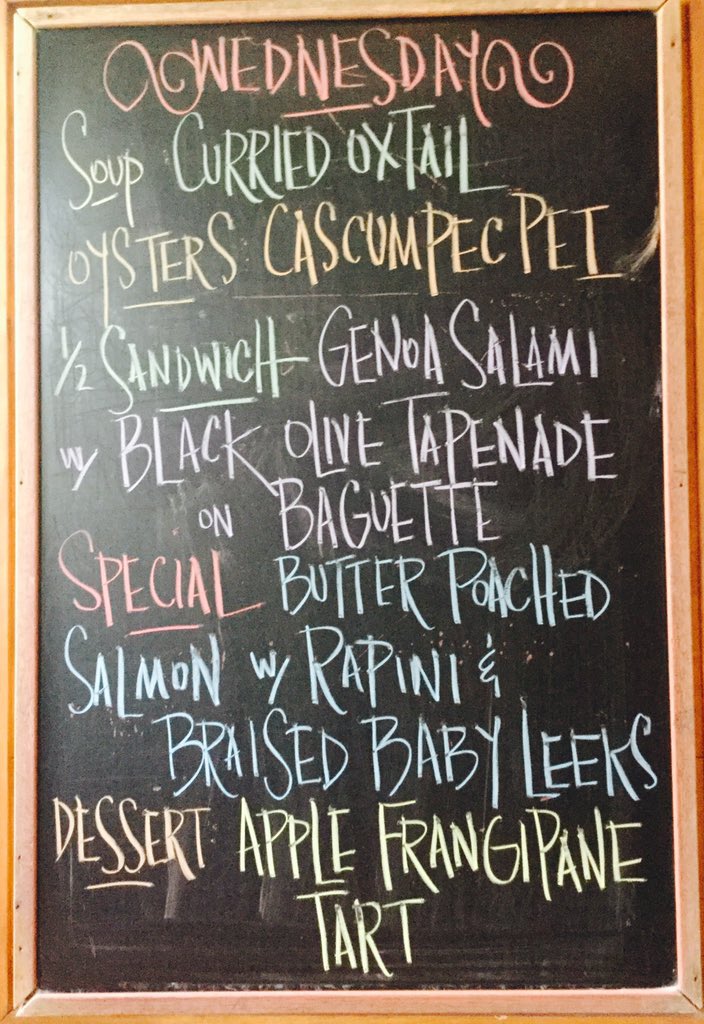 WEDNESDAY
SOUP CURRIED OXTAIL
OYSTERS CASCUMPEC PEI
1/2 SANDWICH GENOA SALAMI
w/ BLACK OLIVE TAPENADE
ON BAGUETTE
SPECIAL BUTTER POACHED
SALMON w/ RAPINI &
BRAISED BABY LEEKS
DESSERT APPLE FRANGIPANE
TART